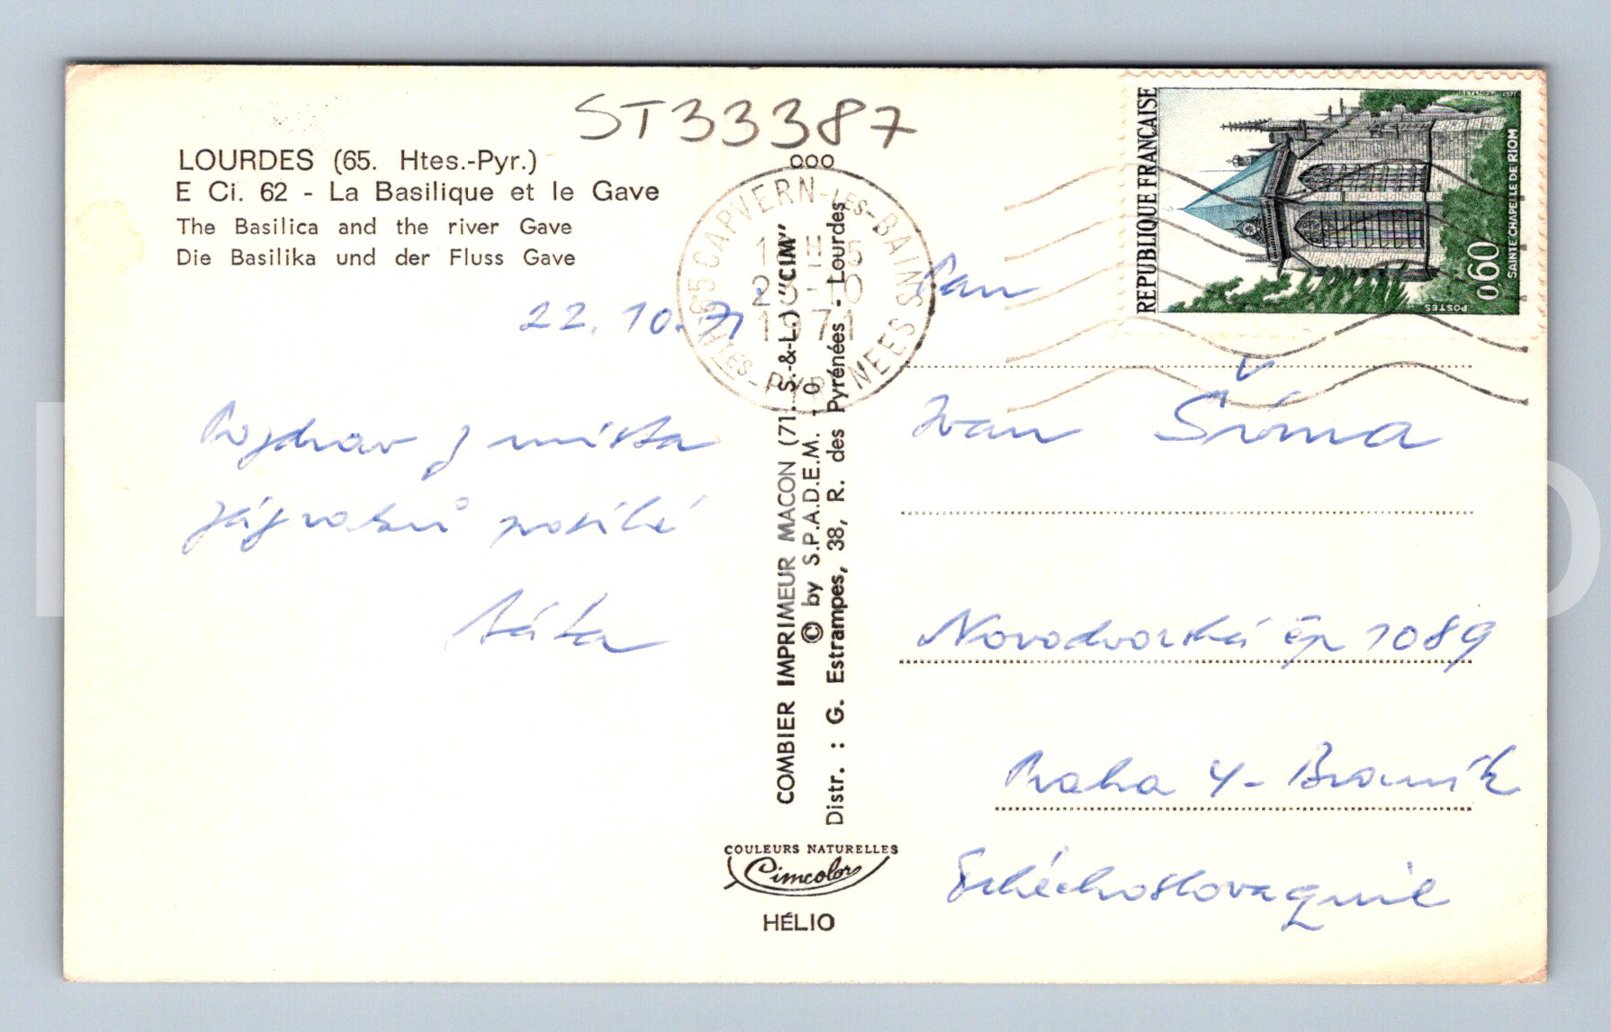 ST33387
LOURDES (65. Htes.-Pyr.)
E Ci. 62 - La Basilique et le Gave
The Basilica and the river Gave
Die Basilika und der Fluss Gave
22. 10. 71
Pozdrav z místa
zázraků posílá
táta
COMBIER IMPRIMEUR MACON (71. S.-&-L.) "CIM"
© by S.P.A.D.E.M.
Distr. : G. Estrampes, 38, R. des Pyrénées - Lourdes
COULEURS NATURELLES
Cimcolor
HÉLIO
65 CAPVERN-LES-BAINS
1971
HTES-PYRENEES
REPUBLIQUE FRANÇAISE
0,60
SAINTE CHAPELLE DE RIOM
POSTES
Pan
Ivan Šíma
Novodvorská čp 1089
Praha 4 - Braník
Tchéchoslovaquie